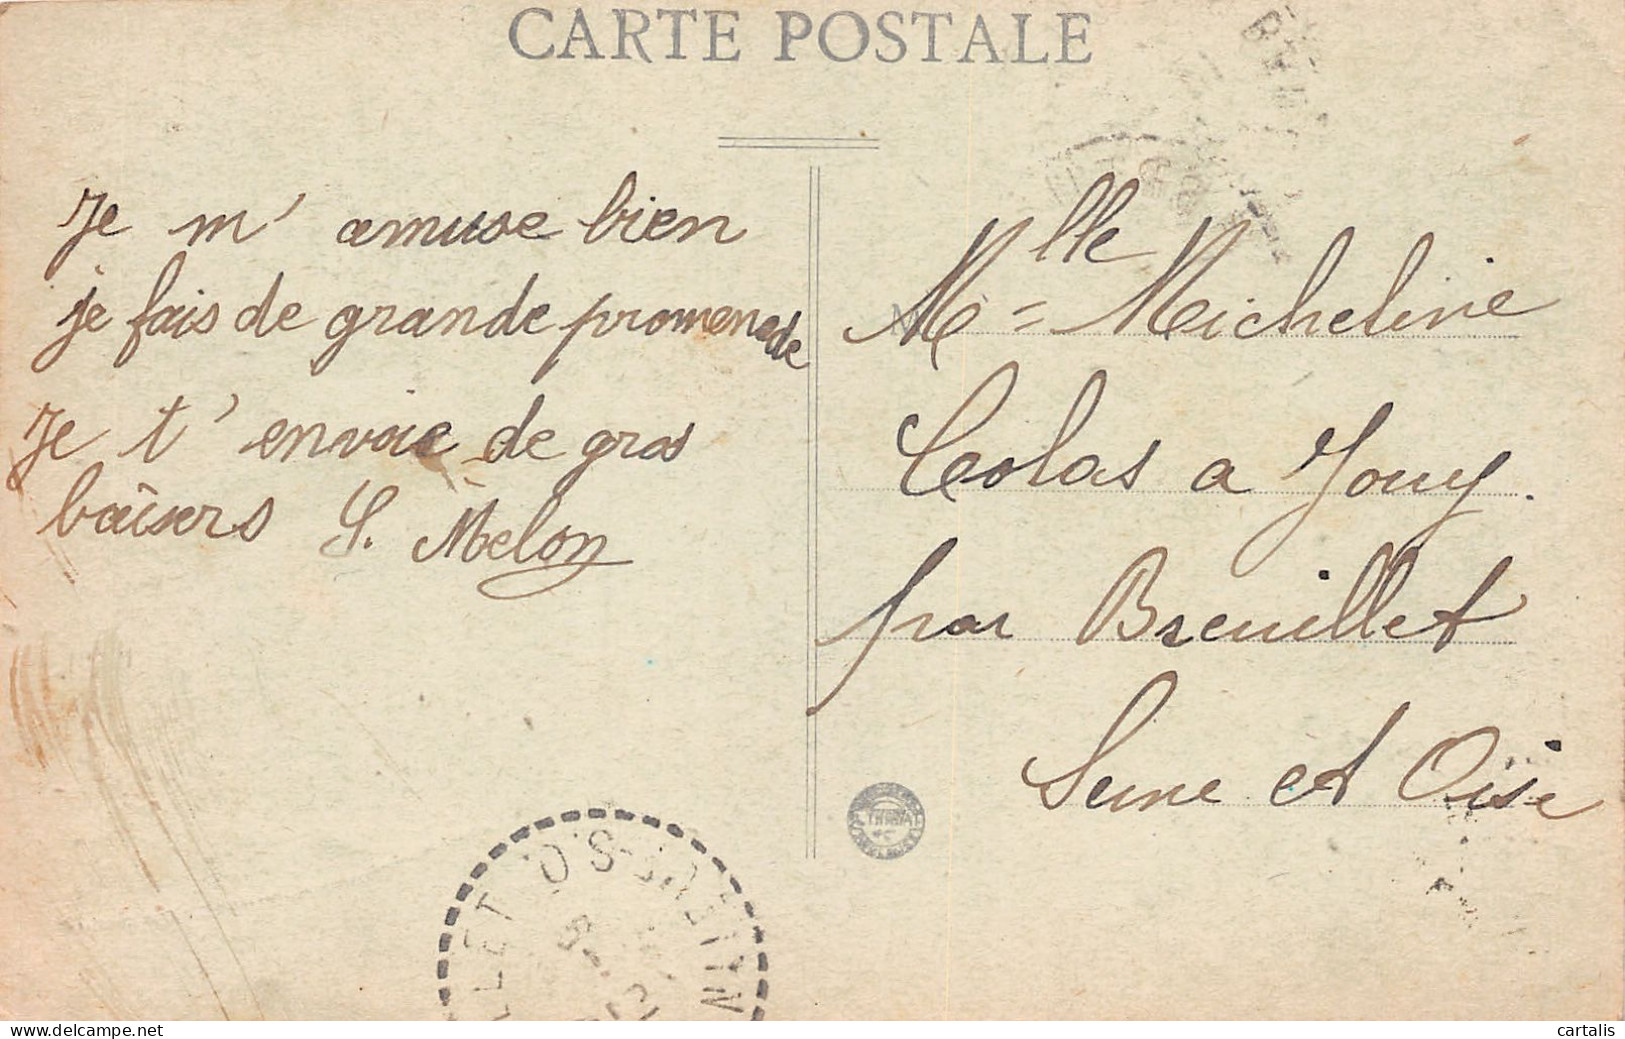 CARTE POSTALE
Je m' amuse bien
je fais de grande promenade
Je t' envoie de gros
baîsers S. Mèlon
Mlle = Micheline
Colas a Jouy.
par Breuillet
Seine et Oïse
cartalis